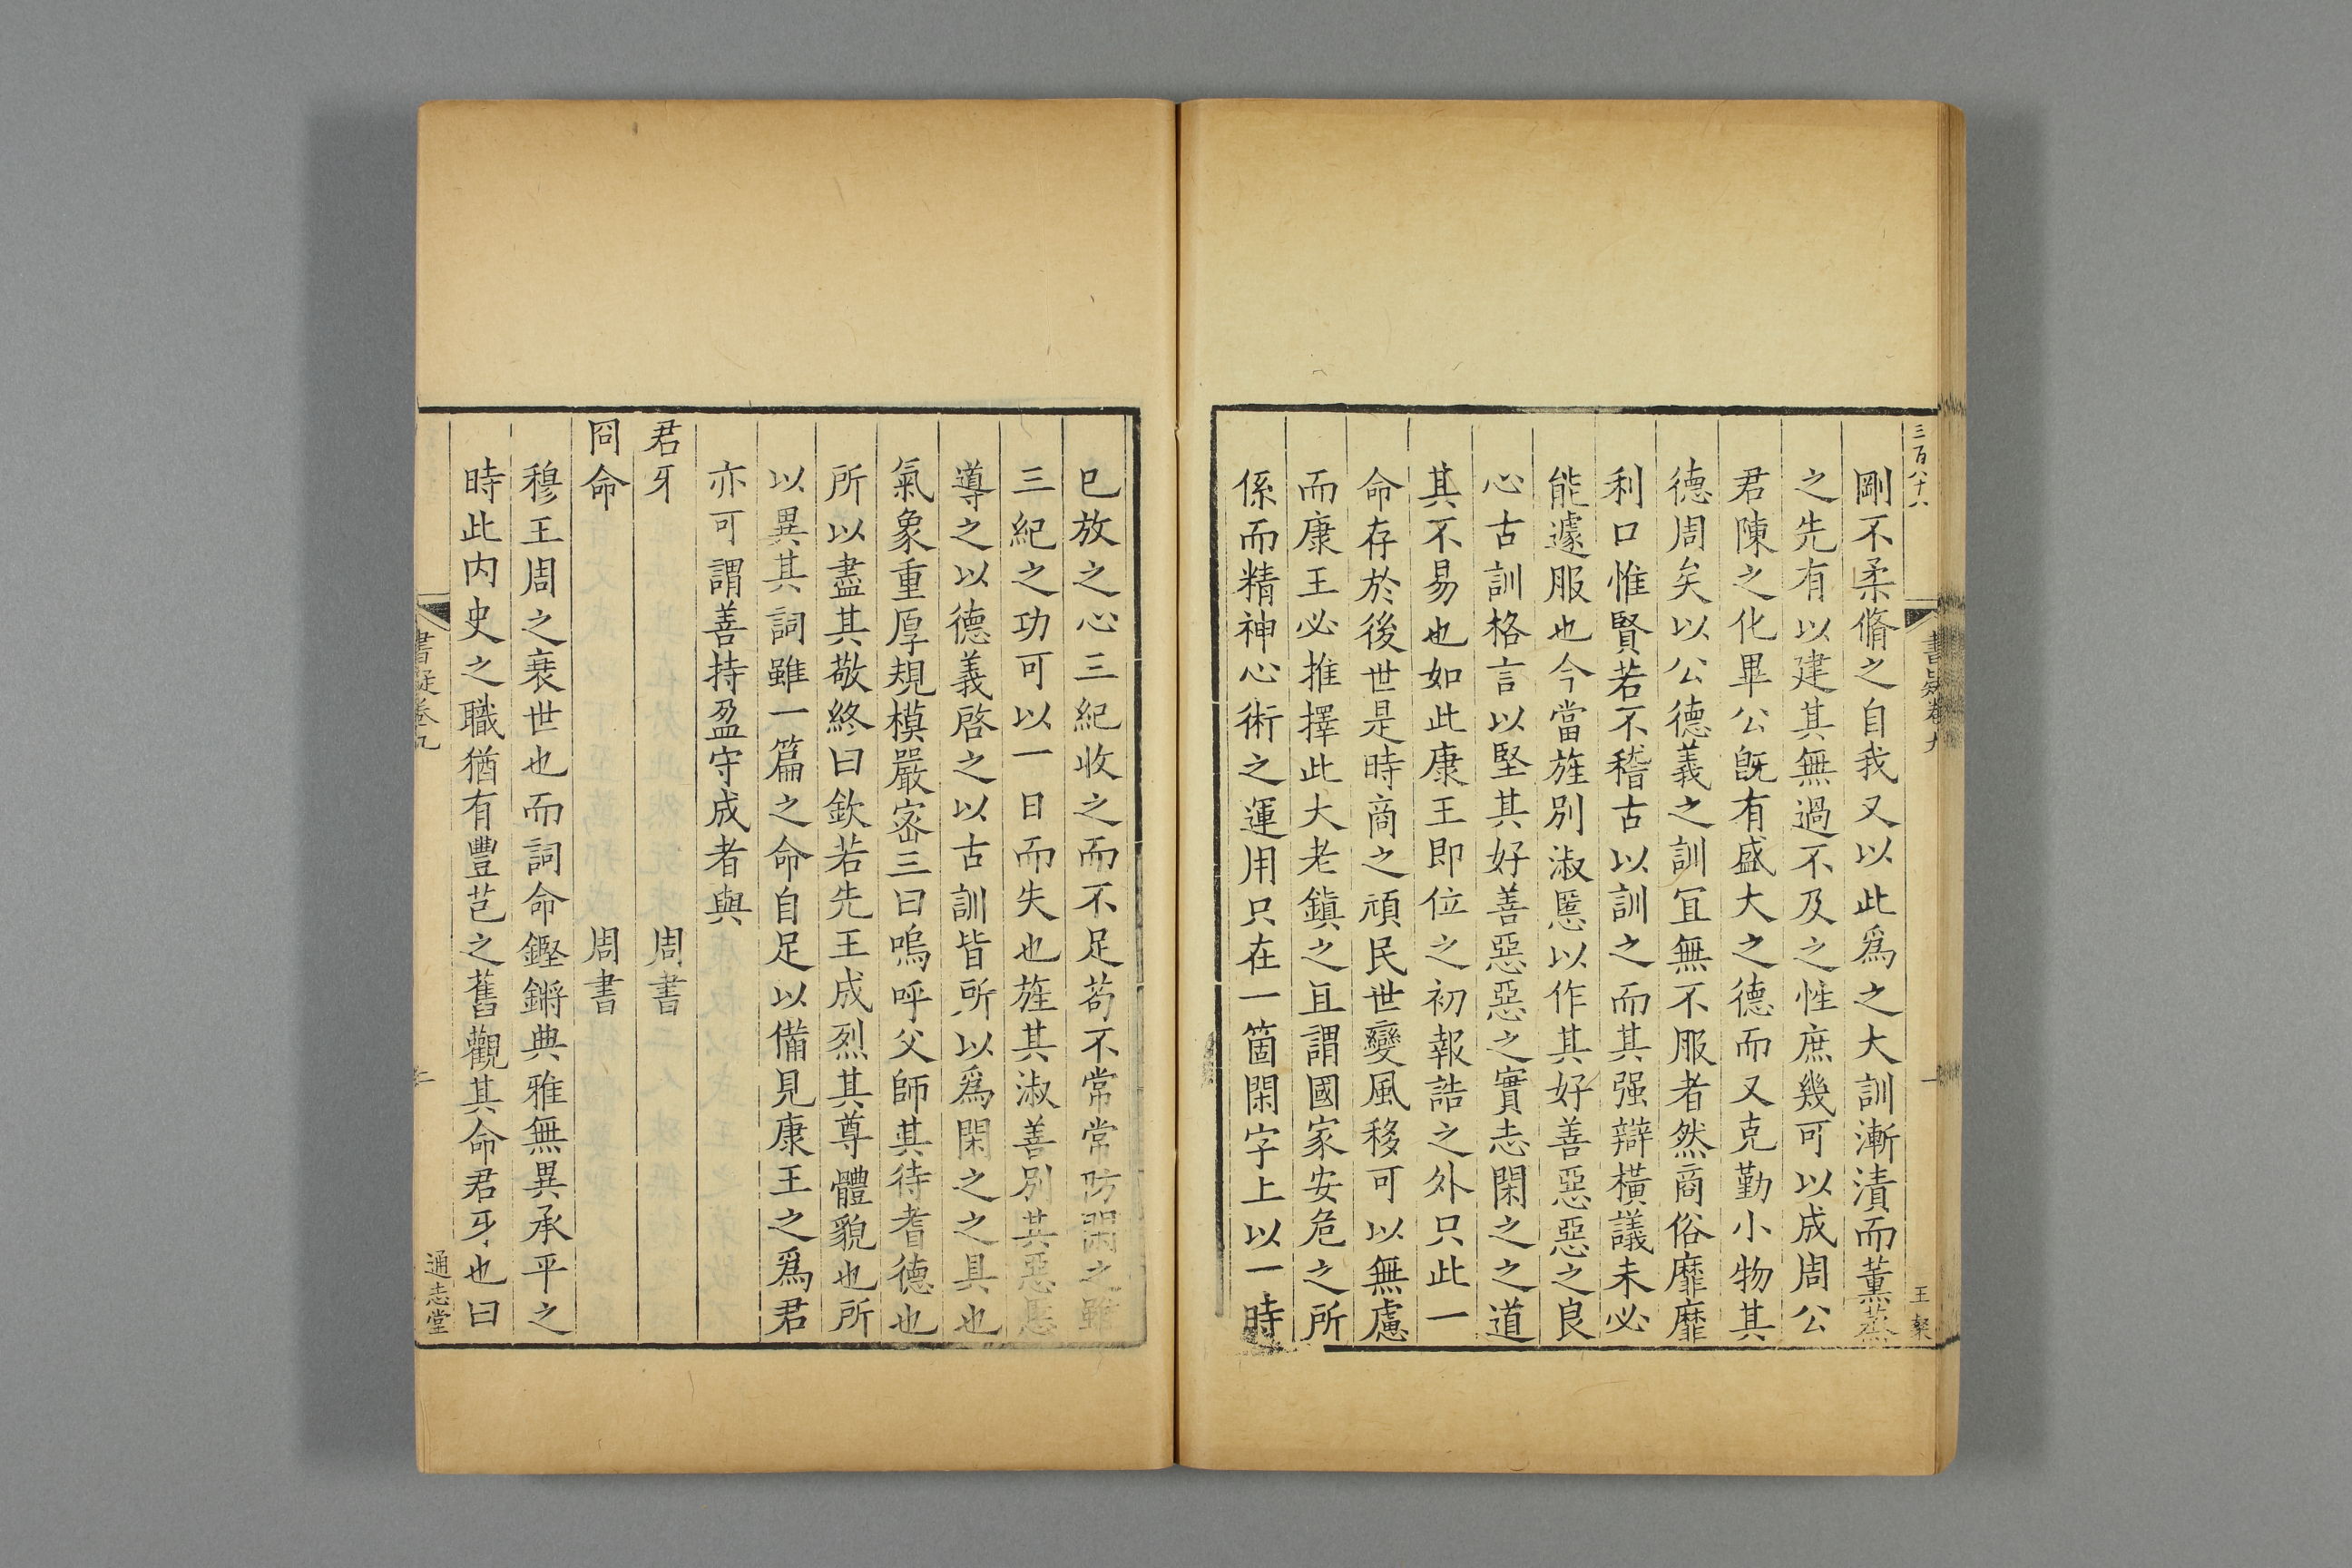 三百八十八
書疑卷九
王
剛不柔脩之自我又以此爲之大訓漸漬而薰蒸
之先有以建其無過不及之性庶幾可以成周公
君陳之化畢公旣有盛大之德而又克勤小物其
德周矣以公德義之訓冝無不服者然商俗靡靡
利口惟賢若不稽古以訓之而其强辯橫議未必
能遽服也今當旌別淑慝以作其好善惡惡之良
心古訓格言以堅其好善惡惡之實志閑之之道
其不易也如此康王即位之初報誥之外只此一
命存於後世是時商之頑民世變風移可以無慮
而康王必推擇此大老鎮之且謂國家安危之所
係而精神心術之運用只在一箇閑字上以一時
已放之心三紀收之而不足苟不常常防閑之雖
三紀之功可以一日而失也旌其淑善別其惡慝
導之以德義啓之以古訓皆所以爲閑之之具也
氣象重厚規模嚴宻三曰嗚呼父師其待耆德也
所以盡其敬終曰欽若先王成烈其尊體貌也所
以異其詞雖一篇之命自足以備見康王之爲君
亦可謂善持盈守成者與
君牙　周書
冏命　周書
穆王周之衰世也而詞命鏗鏘典雅無異承平之
時此内史之職猶有豐芑之舊觀其命君牙也曰
書疑卷九
通志堂